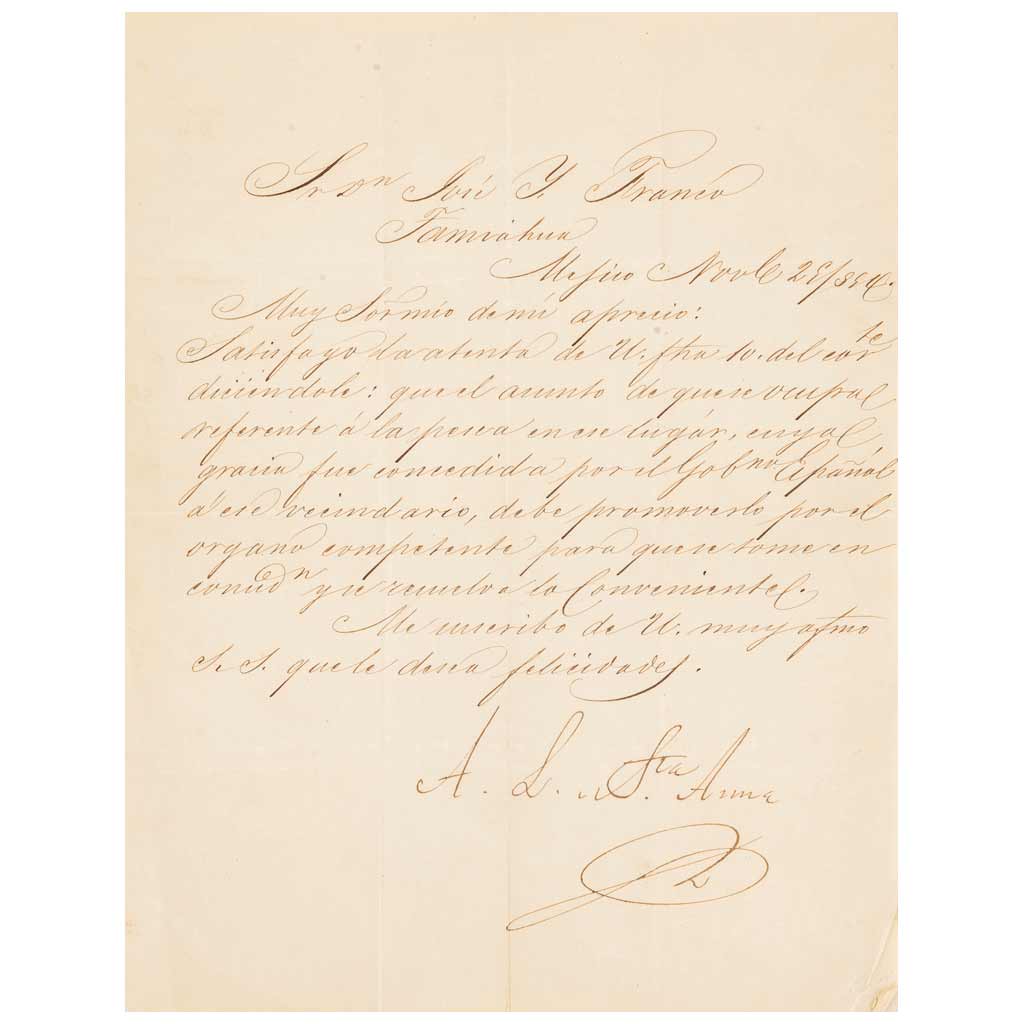 Sr Dn José Y. Franco
Tamiahua
Mejico Novbe 25/854.
Muy Sor mio de mi aprecio:
Satisfago la atenta de U. fha 10. del corte
diciendole: que el asunto de que se ocupa
referente á la pesca en ese lugár, cuya
gracia fue concedida por el Gobno Español
á ese vecindario, debe promoverlo por el
organo competente para que se tome en
conscidn y se resuelva lo Conveniente.
Me suscribo de U. muy afmo
S. S. que le desea felicidades.
A. L. de Sta Anna